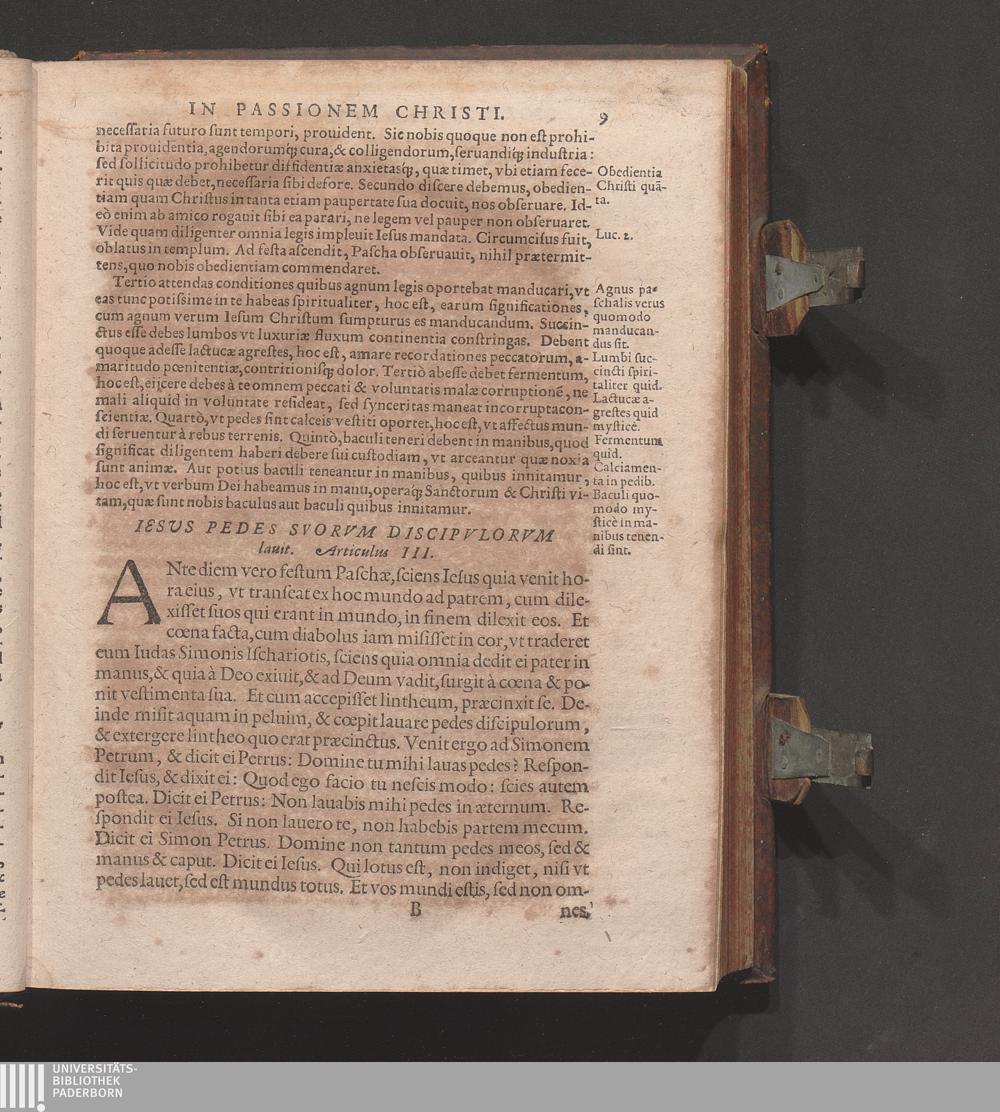 IN PASSIONEM CHRISTI. 9
necessaria futuro sunt tempori, prouident. Sic nobis quoque non est prohi-
bita prouidentia, agendorumq́; cura, & colligendorum, seruandiq́; industria:
sed sollicitudo prohibetur diffidentiæ anxietasq́;, quæ timet, vbi etiam fece-
rit quis quæ debet, necessaria sibi defore. Secundo discere debemus, obedien-
tiam quam Christus in tanta etiam paupertate sua docuit, nos obseruare. Id-
eò enim ab amico rogauit sibi ea parari, ne legem vel pauper non obseruaret.
Vide quam diligenter omnia legis impleuit Iesus mandata. Circumcisus fuit,
oblatus in templum. Ad festa ascendit, Pascha obseruauit, nihil prætermit-
tens, quo nobis obedientiam commendaret.
Obedientia
Christi quā-
ta.
Luc. 2.
Tertio attendas conditiones quibus agnum legis oportebat manducari, vt
eas tunc potissime in te habeas spiritualiter, hoc est, earum significationes,
cum agnum verum Iesum Christum sumpturus es manducandum. Succin-
ctus esse debes lumbos vt luxuriæ fluxum continentia constringas. Debent
quoque adesse lactucæ agrestes, hoc est, amare recordationes peccatorum, a-
maritudo pœnitentiæ, contritionisq́; dolor. Tertiò abesse debet fermentum,
hoc est, eijcere debes à te omnem peccati & voluntatis malæ corruptionē, ne
mali aliquid in voluntate resideat, sed synceritas maneat incorrupta con-
scientiæ. Quartò, vt pedes sint calceis vestiti oportet, hoc est, vt affectus mun-
di seruentur à rebus terrenis. Quintò, baculi teneri debent in manibus, quod
significat diligentem haberi debere sui custodiam, vt arceantur quæ noxia
sunt animæ. Aut potius baculi teneantur in manibus, quibus innitamur,
hoc est, vt verbum Dei habeamus in manu, operaq́; Sanctorum & Christi vi-
tam, quæ sunt nobis baculus aut baculi quibus innitamur.
Agnus pa-
schalis verus
quomodo
manducan-
dus sit.
Lumbi suc-
cincti spiri-
taliter quid.
Lactucæ a-
grestes quid
mysticè.
Fermentum
quid.
Calciamen-
ta in pedib.
Baculi quo-
modo my-
sticè in ma-
nibus tenen-
di sint.
IESVS PEDES SVORVM DISCIPVLORVM
lauit. Articulus III.
ANte diem vero festum Paschæ, sciens Iesus quia venit ho-
ra eius, vt transeat ex hoc mundo ad patrem, cum dile-
xisset suos qui erant in mundo, in finem dilexit eos. Et
cœna facta, cum diabolus iam misisset in cor, vt traderet
eum Iudas Simonis Ischariotis, sciens quia omnia dedit ei pater in
manus, & quia à Deo exiuit, & ad Deum vadit, surgit à cœna & po-
nit vestimenta sua. Et cum accepisset lintheum, præcinxit se. De-
inde misit aquam in peluim, & cœpit lauare pedes discipulorum,
& extergere lintheo quo erat præcinctus. Venit ergo ad Simonem
Petrum, & dicit ei Petrus: Domine tu mihi lauas pedes? Respon-
dit Iesus, & dixit ei: Quod ego facio tu nescis modo: scies autem
postea. Dicit ei Petrus: Non lauabis mihi pedes in æternum. Re-
spondit ei Iesus. Si non lauero te, non habebis partem mecum.
Dicit ei Simon Petrus. Domine non tantum pedes meos, sed &
manus & caput. Dicit ei Iesus. Qui lotus est, non indiget, nisi vt
pedes lauet, sed est mundus totus. Et vos mundi estis, sed non om-
B nes,
UNIVERSITÄTS-
BIBLIOTHEK
PADERBORN